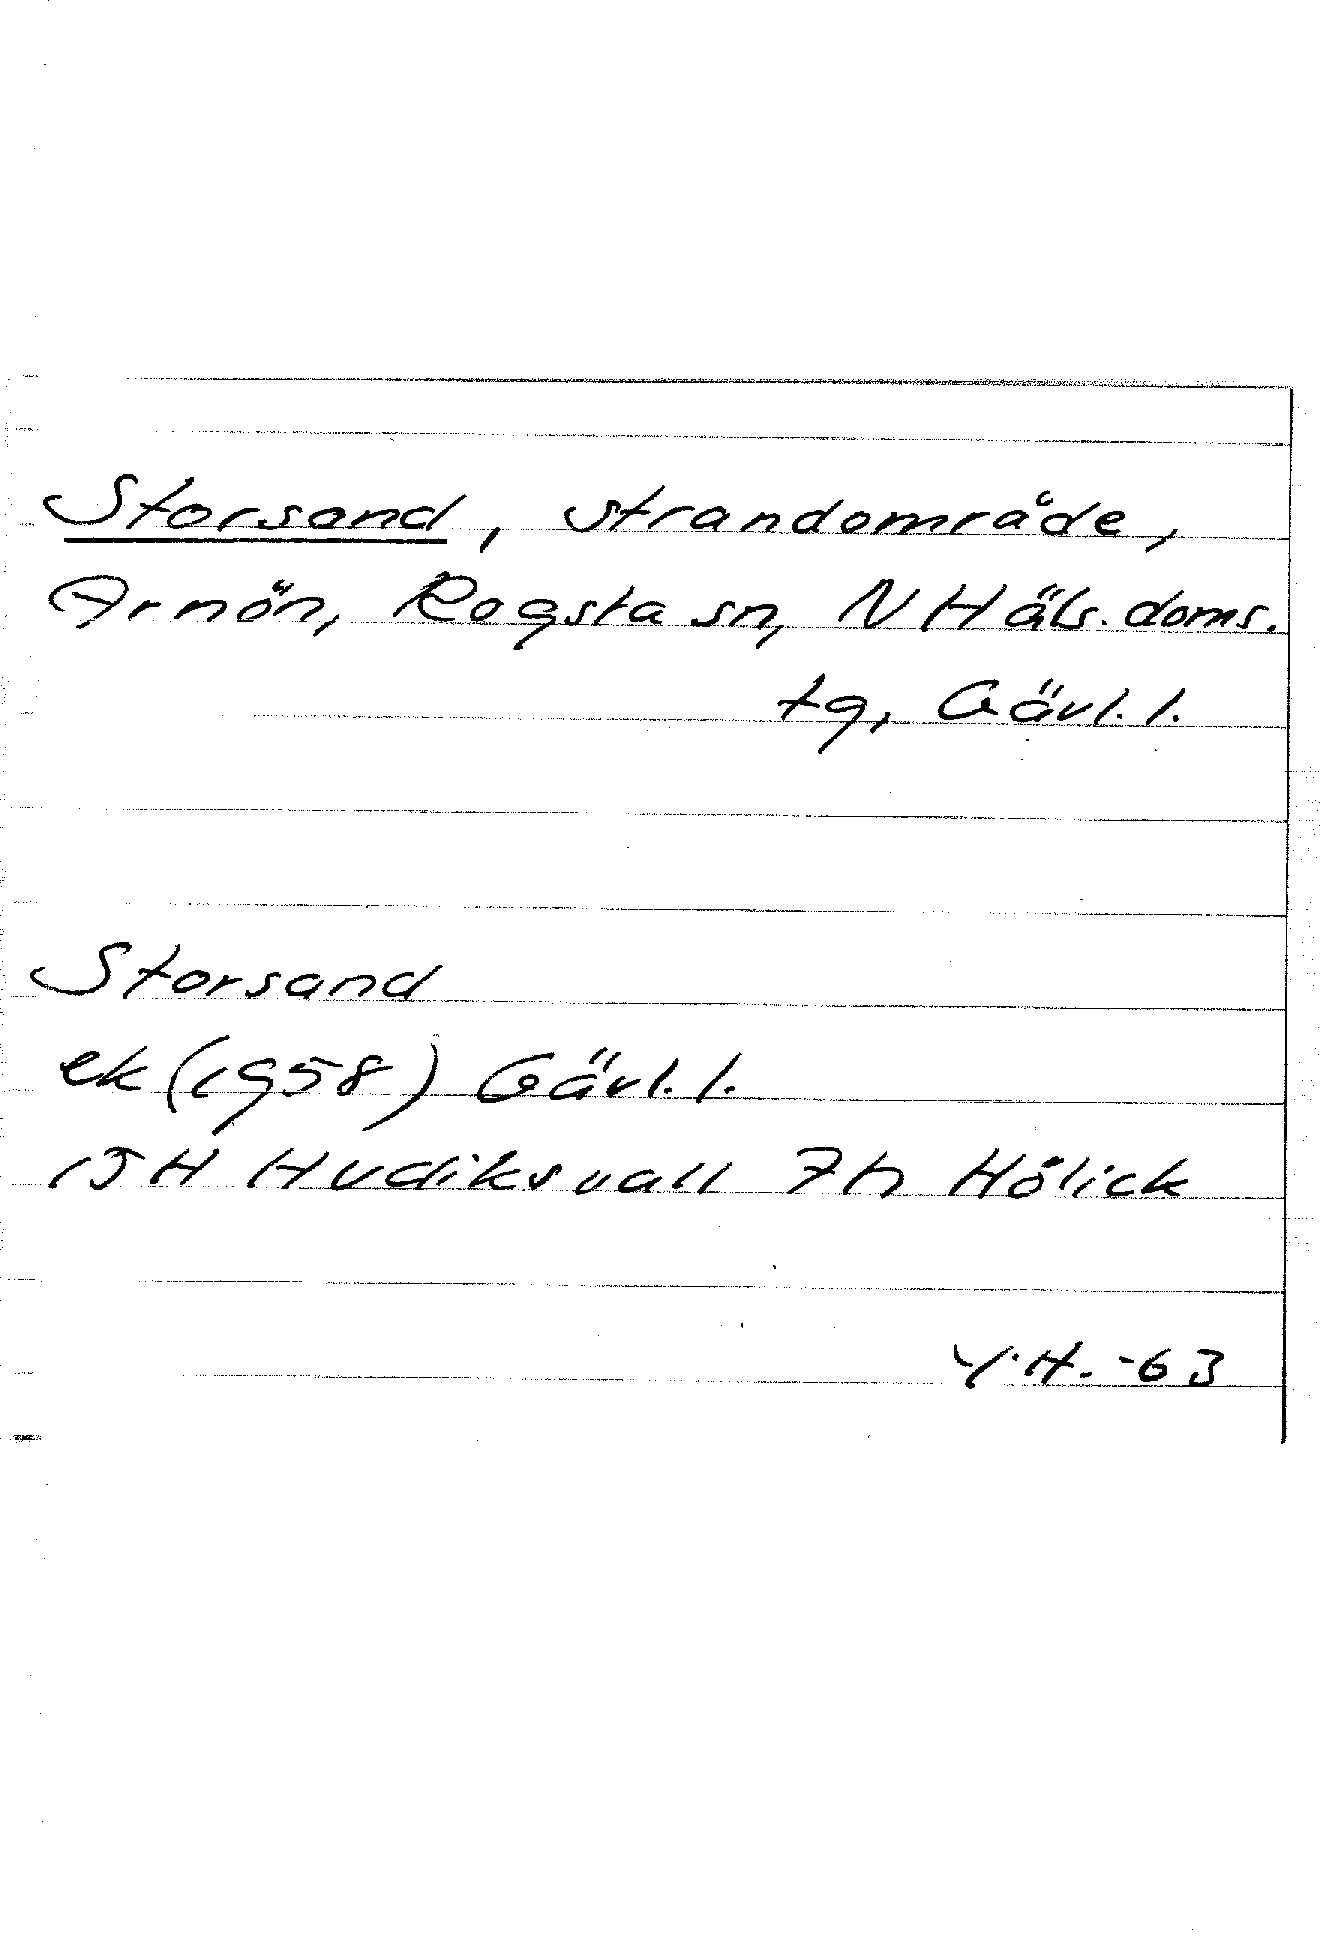 Storsand, strandområde,
Arnön, Rogsta sn, N Häls. doms.
tg, Gävl. l.
Storsand
ek (1958) Gävl. l.
15H Hudiksvall 7h Hölick
Y.H. -63